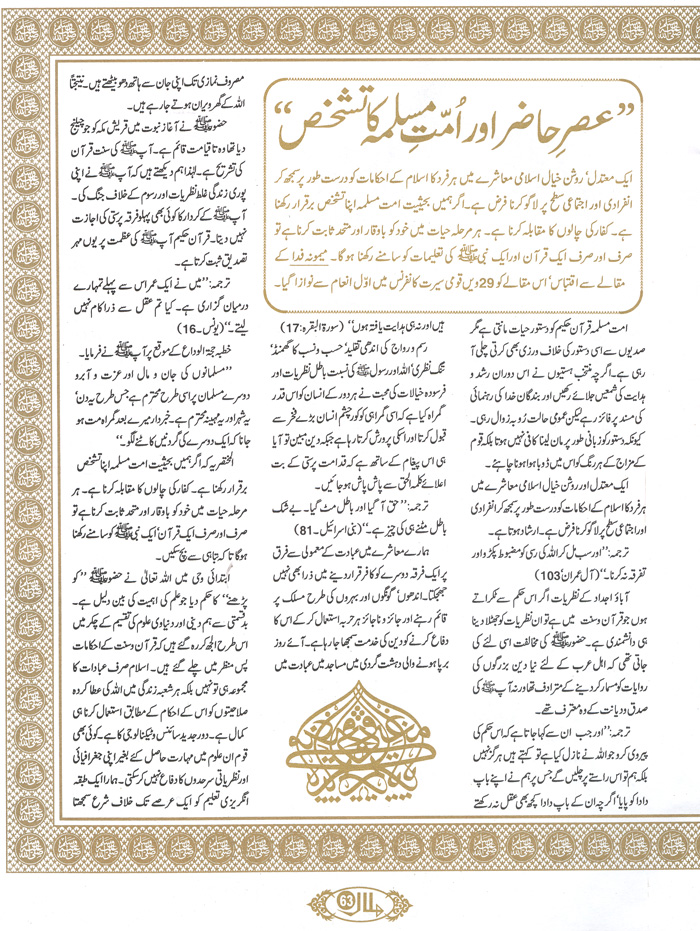 ”عصرِ حاضر اور اُمّتِ مسلمہ کا تشخص“
ایک معتدل، روشن خیال اسلامی معاشرے میں ہر فرد کا اسلام کے احکامات کو درست طور پر سمجھ کر
انفرادی اور اجتماعی سطح پر لاگو کرنا فرض ہے۔ اگر ہمیں بحیثیت امت مسلمہ اپنا تشخص برقرار رکھنا
ہے۔ کفار کی چالوں کا مقابلہ کرنا ہے۔ ہر مرحلہ حیات میں خود کو باوقار اور متحد ثابت کرنا ہے تو
صرف اور صرف ایک قرآن اور ایک نبی ﷺ کی تعلیمات کو سامنے رکھنا ہوگا۔ میمونہ فدا کے
مقالے سے اقتباس، اس مقالے کو 29ویں قومی سیرت کانفرنس میں اوّل انعام سے نوازا گیا۔
امت مسلمہ قرآن حکیم کو دستور حیات مانتی ہے مگر
صدیوں سے اسی دستور کی خلاف ورزی بھی کرتی چلی آ
رہی ہے۔ اگرچہ منتخب ہستیوں نے اس دوران رشد و
ہدایت کی شمعیں جلائے رکھیں اور بندگان خدا کی رہنمائی
کی مسند پر فائز رہے لیکن عمومی حالت رُو بہ زوال رہی۔
کیونکہ دستور کو زبانی طور پر مان لینا کافی نہیں ہوتا بلکہ قوم
کے مزاج کے ہر رنگ کو اس میں ڈوبا ہوا ہونا چاہئے۔
ایک معتدل اور روشن خیال اسلامی معاشرے میں
ہر فرد کا اسلام کے احکامات کو درست طور پر سمجھ کر انفرادی
اور اجتماعی سطح پر لاگو کرنا فرض ہے۔ ارشاد ہوتا ہے۔
ترجمہ: ”اور سب مل کر اللہ کی رسی کو مضبوط پکڑو اور
تفرقہ نہ کرنا۔“ (آل عمران،103)
آباؤ اجداد کے نظریات اگر اس حکم سے ٹکراتے
ہوں جو قرآن و سنت میں ہے تو ان نظریات کو جھٹلا دینا
ہی دانشمندی ہے۔ حضور ﷺ کی مخالفت اسی لئے کی
جاتی تھی کہ اہل عرب کے لئے نیا دین بزرگوں کی
روایات کو مسمار کر دینے کے مترادف تھا ورنہ آپ ﷺ کی
صدق و دیانت کے وہ معترف تھے۔
ترجمہ: ”اور جب ان سے کہا جاتا ہے کہ اس حکم کی
پیروی کرو جو اللہ نے نازل کیا ہے تو کہتے ہیں ہرگز نہیں
بلکہ ہم تو اس راستے پر چلیں گے جس پر ہم نے اپنے باپ
دادا کو پایا، اگرچہ ان کے باپ دادا کچھ بھی عقل نہ رکھتے
ہیں اور نہ ہی ہدایت یافتہ ہوں“ (سورۃ البقرہ:17)
رسم و رواج کی اندھی تقلید، حسب و نسب کا گھمنڈ،
تنگ نظری، اللہ اور رسول ﷺ کی نسبت باطل نظریات اور
فرسودہ خیالات کی محبت نے ہر دور کے انسان کو اس قدر
گمراہ کیا ہے کہ اسی گمراہی کو کور چشم انسان بڑے فخر سے
قبول کرتا اور اسکی پرورش کرتا رہا ہے جبکہ دین مبین تو آیا
ہی اس پیغام کے ساتھ ہے کہ قدامت پرستی کے بت
اعلائے کلمۃ الحق سے پاش پاش ہو جائیں۔
ترجمہ: ”حق آ گیا اور باطل مٹ گیا۔ بے شک
باطل مٹنے ہی کی چیز ہے۔“ (بنی اسرائیل۔81)
ہمارے معاشرے میں عبادت کے معمولی سے فرق
پر ایک فرقہ دوسرے کو کافر قرار دینے میں ذرا بھی نہیں
جھجکتا۔ اندھوں، گونگوں اور بہروں کی طرح مسلک پر
قائم رہنے اور جائز و ناجائز ہر حربہ استعمال کر کے اس کا
دفاع کرنے کو دین کی خدمت سمجھا جا رہا ہے۔ آئے روز
برپا ہونے والی دہشت گردی میں مساجد میں عبادت میں
مصروف نمازی تک اپنی جان سے ہاتھ دھو بیٹھتے ہیں۔ نتیجتاً
اللہ کے گھر ویران ہوتے جا رہے ہیں۔
حضور ﷺ نے آغاز نبوت میں قریش مکہ کو جو چیلنج
دیا تھا وہ تا قیامت قائم ہے۔ آپ ﷺ کی سنت قرآن
کی تشریح ہے۔ لہٰذا ہم دیکھتے ہیں کہ آپ ﷺ نے اپنی
پوری زندگی غلط نظریات اور رسوم کے خلاف جنگ کی۔
آپ ﷺ کے کردار کا کوئی بھی پہلو فرقہ پرستی کی اجازت
نہیں دیتا۔ قرآن حکیم آپ ﷺ کی عظمت پر یوں مہر
تصدیق ثبت کرتا ہے۔
ترجمہ: ”میں نے ایک عمر اس سے پہلے تمہارے
درمیان گزاری ہے۔ کیا تم عقل سے ذرا کام نہیں
لیتے۔“ (یونس۔16)
خطبہ حجۃ الوداع کے موقع پر آپ ﷺ نے فرمایا۔
”مسلمانوں کی جان و مال اور عزت و آبرو
دوسرے مسلمان پر اسی طرح محترم ہے جس طرح یہ دن،
یہ شہر اور یہ مہینہ محترم ہے۔ خبردار میرے بعد گمراہ مت ہو
جانا کہ ایک دوسرے کی گردنیں کاٹنے لگو۔“
المختصر یہ کہ اگر ہمیں بحیثیت امت مسلمہ اپنا تشخص
برقرار رکھنا ہے۔ کفار کی چالوں کا مقابلہ کرنا ہے۔ ہر
مرحلہ حیات میں خود کو باوقار اور متحد ثابت کرنا ہے تو
صرف اور صرف ایک قرآن، ایک نبی ﷺ کو سامنے رکھنا
ہوگا تا کہ تباہی سے بچ سکیں۔
ابتدائی وحی میں اللہ تعالیٰ نے حضور ﷺ ”کو
پڑھنے“ کا حکم دیا جو علم کی اہمیت کی بین دلیل ہے۔
بدقسمتی سے ہم دینی اور دنیاوی علوم کی تقسیم کے چکر میں
اس طرح الجھ کر رہ گئے ہیں کہ قرآن و سنت کے احکامات
پس منظر میں چلے گئے ہیں۔ اسلام صرف عبادات کا
مجموعہ ہی تو نہیں بلکہ ہر شعبہ زندگی میں اللہ کی عطا کردہ
صلاحیتوں کو اس کے احکام کے مطابق استعمال کرنا ہی
کمال ہے۔ دور جدید سائنس و ٹیکنالوجی کا ہے کوئی بھی
قوم ان علوم میں مہارت حاصل کئے بغیر اپنی جغرافیائی
اور نظریاتی سرحدوں کا دفاع نہیں کر سکتی۔ ہمارا ایک طبقہ
انگریزی تعلیم کو ایک عرصے تک خلاف شرع سمجھتا
ہلال 63